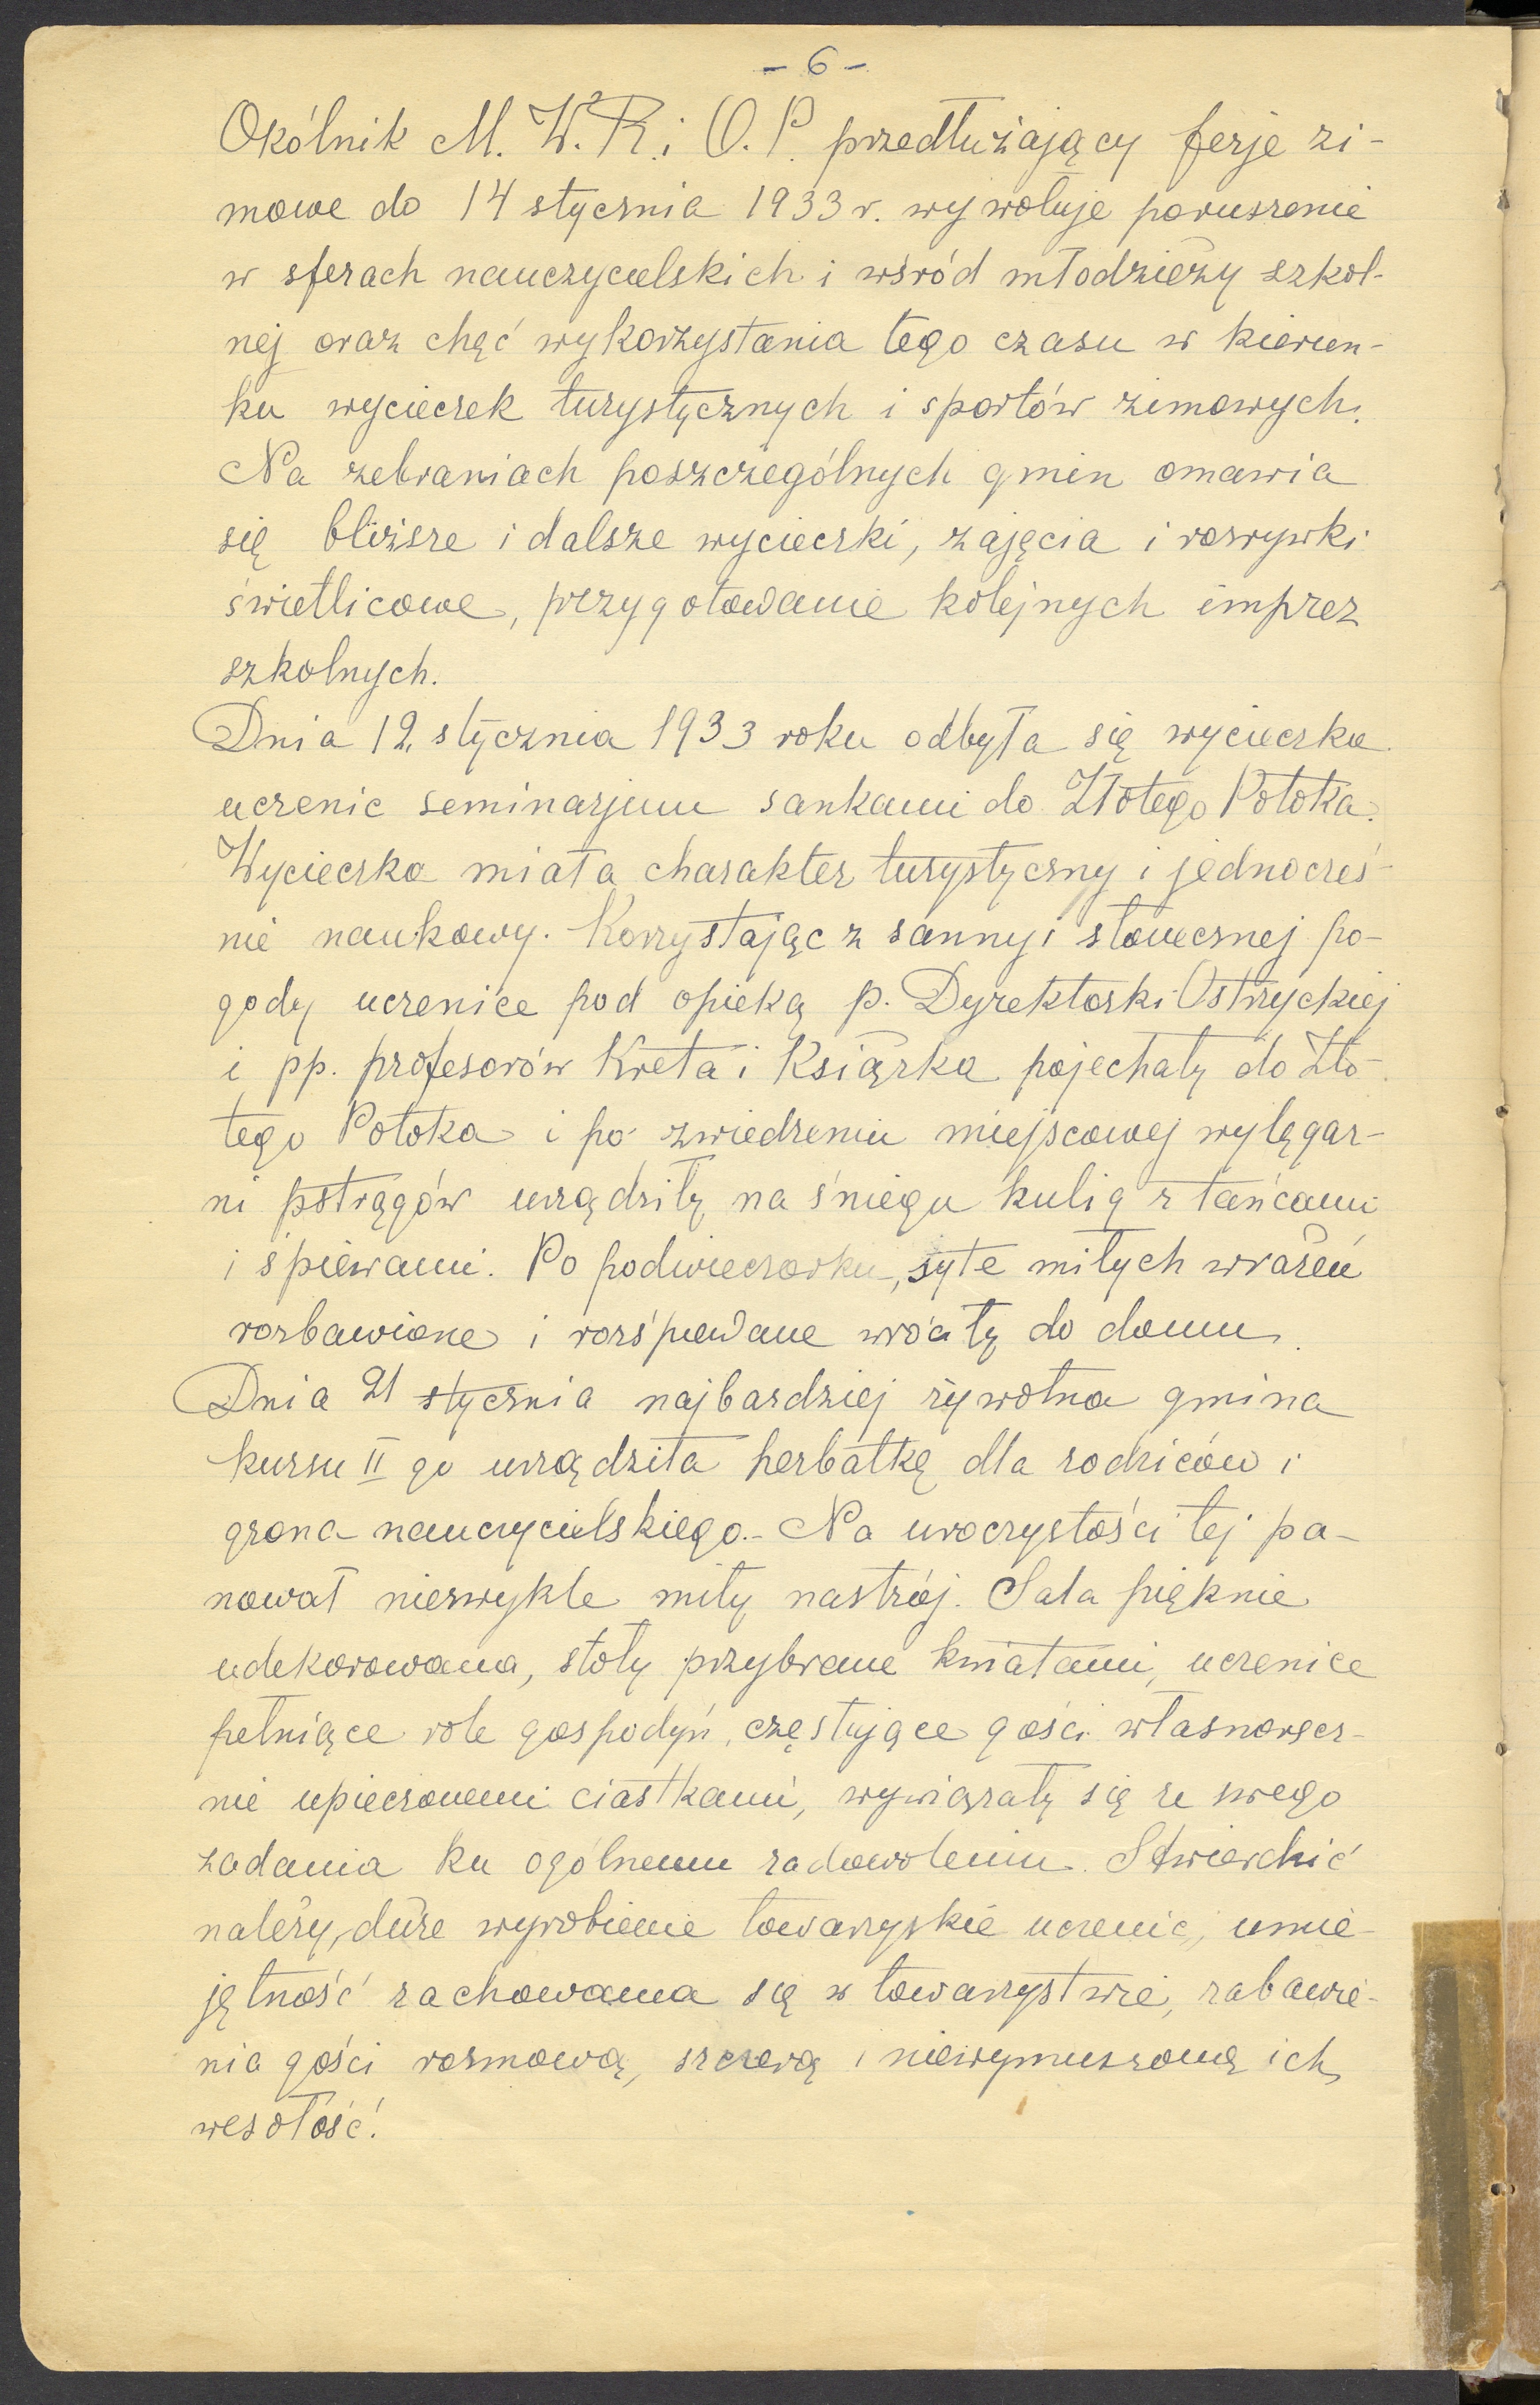 - 6 -
Okólnik M. W. R. i O. P. przedłużający ferje zi-
mowe do 14 stycznia 1933 r. wywołuje poruszenie
w sferach nauczycielskich i wśród młodzieży szkol-
nej oraz chęć wykorzystania tego czasu w kierun-
ku wycieczek turystycznych i sportów zimowych.
Na zebraniach poszczególnych gmin omawia
się bliższe i dalsze wycieczki, zajęcia i rozrywki
świetlicowe, przygotowanie kolejnych imprez
szkolnych.
Dnia 12 stycznia 1933 roku odbyła się wycieczka
uczenic seminarjum sankami do Złotego Potoka.
Wycieczka miała charakter turystyczny i jednocześ-
nie naukowy. Korzystając z sanny i słonecznej po-
gody uczenice pod opieką p. Dyrektorki Ostrzyckiej
i pp. profesorów Kreta i Książka pojechały do Zło-
tego Potoka i po zwiedzeniu miejscowej wylęgar-
ni pstrągów urządziły na śniegu kulig z tańcami
i śpiewami. Po podwieczorku, syte miłych wrażeń
rozbawione i rozśpiewane wróciły do domu.
Dnia 21 stycznia najbardziej żywotna gmina
kursu II go urządziła herbatkę dla rodziców i
grona nauczycielskiego.- Na uroczystości tej pa-
nował niezwykle miły nastrój. Sala pięknie
udekorowana, stoły przybrane kwiatami, uczenice
pełniące role gospodyń, częstujące gości własnoręcz-
nie upieczonemi ciastkami, wywiązały się ze swego
zadania ku ogólnemu zadowoleniu. Stwierdzić
należy, duże wyrobienie towarzyskie uczenic, umie-
jętność zachowania się w towarzystwie, zabawie-
nia gości rozmową, szczerą i niewymuszoną ich
wesołość!